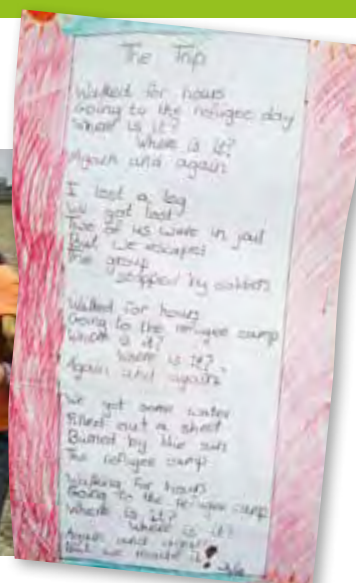 The Trip
Walked for hours
Going to the refugee day
Where is it?
Where is it?
Again and again
I lost a leg
We got lost
Two of us were in jail
But we escaped
The group
stopped by robbers
Walked for hours
Going to the refugee camp
Where is it?
Where is it?
Again and again
We got some water
Filled out a sheet
Burned by the sun
The refugee camp
Walking for hours
Going to the refugee camp
Where is it?
Where is it?
Again and again
But we made it!